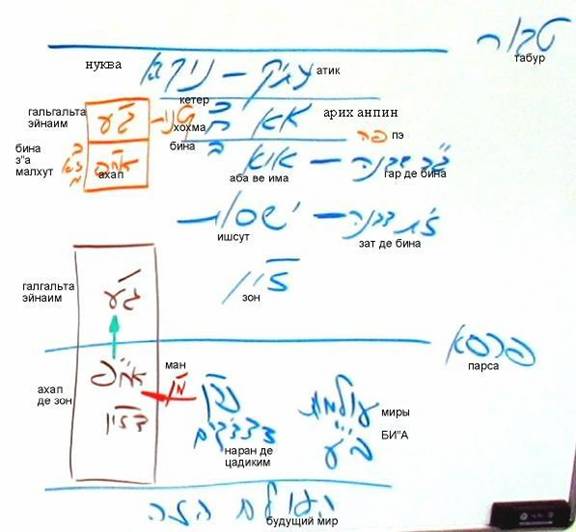 טבור
табур
עתיק – נוקבא
нуква
атик
кетер
גע
гальгальта
эйнаим
хохма
כ
ח
אא
арих анпин
бина
ב
פה
пэ
бина
з"а
малхут
אחפ
ахап
או"א – ג"ר דבינה
аба ве има
гар де бина
ישסות – ז"ת דבינה
ишсут
зат де бина
זו"ן
зон
галгальта
эйнаим
גע
פרסא
парса
ахап
де зон
אחפ
דזון
ман
מ"ן
נרן
דצדיקים
наран де
цадиким
עולמות
בי"ע
миры
БИ"А
העולם הזה
будущий мир